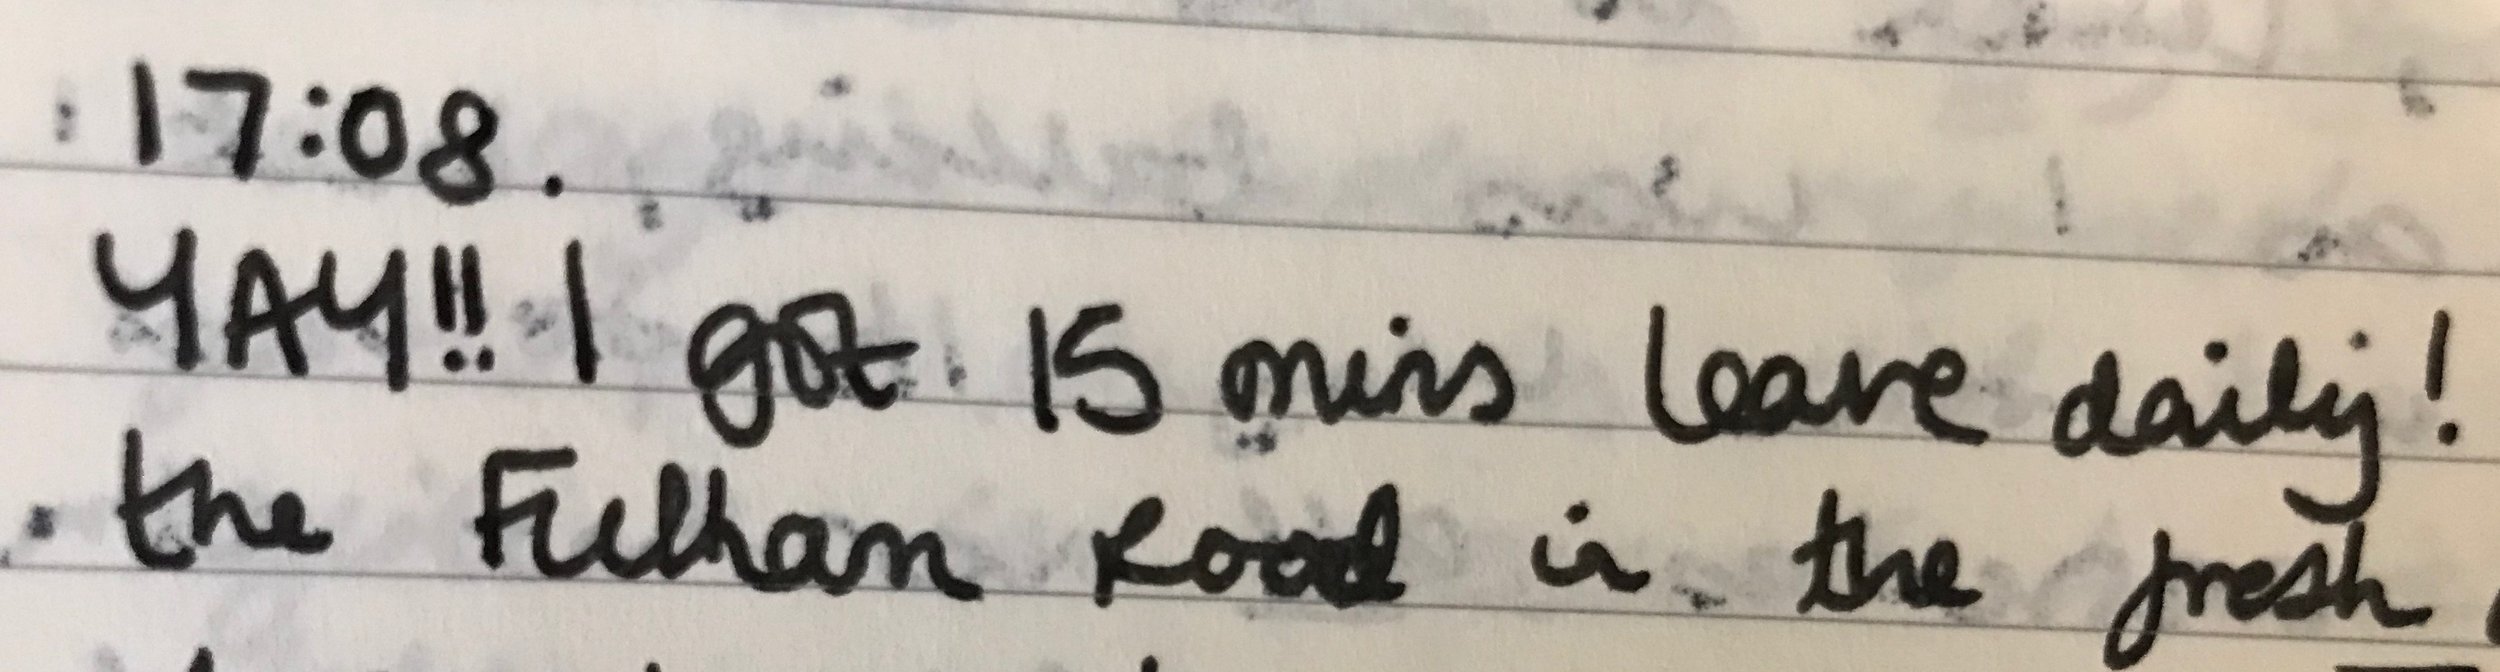 17:08.
YAY!! I got 15 mins leave daily!
the Fulham Road in the fresh